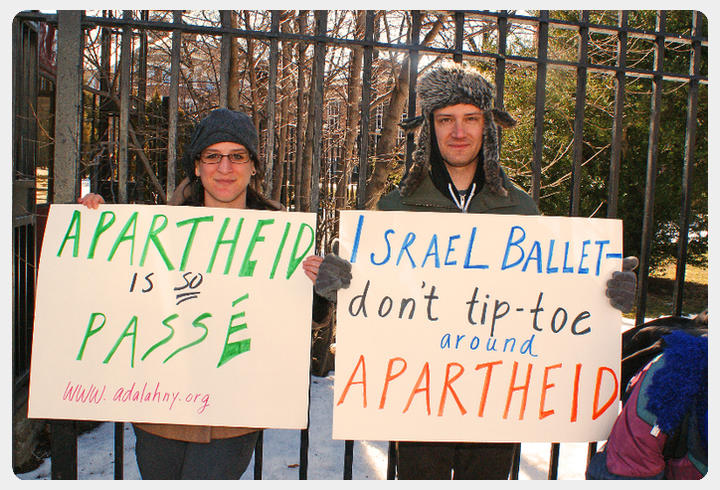 APARTHEID
IS SO
PASSÉ
WWW.adalahny.org
ISRAEL BALLET-
don't tip-toe
around
APARTHEID